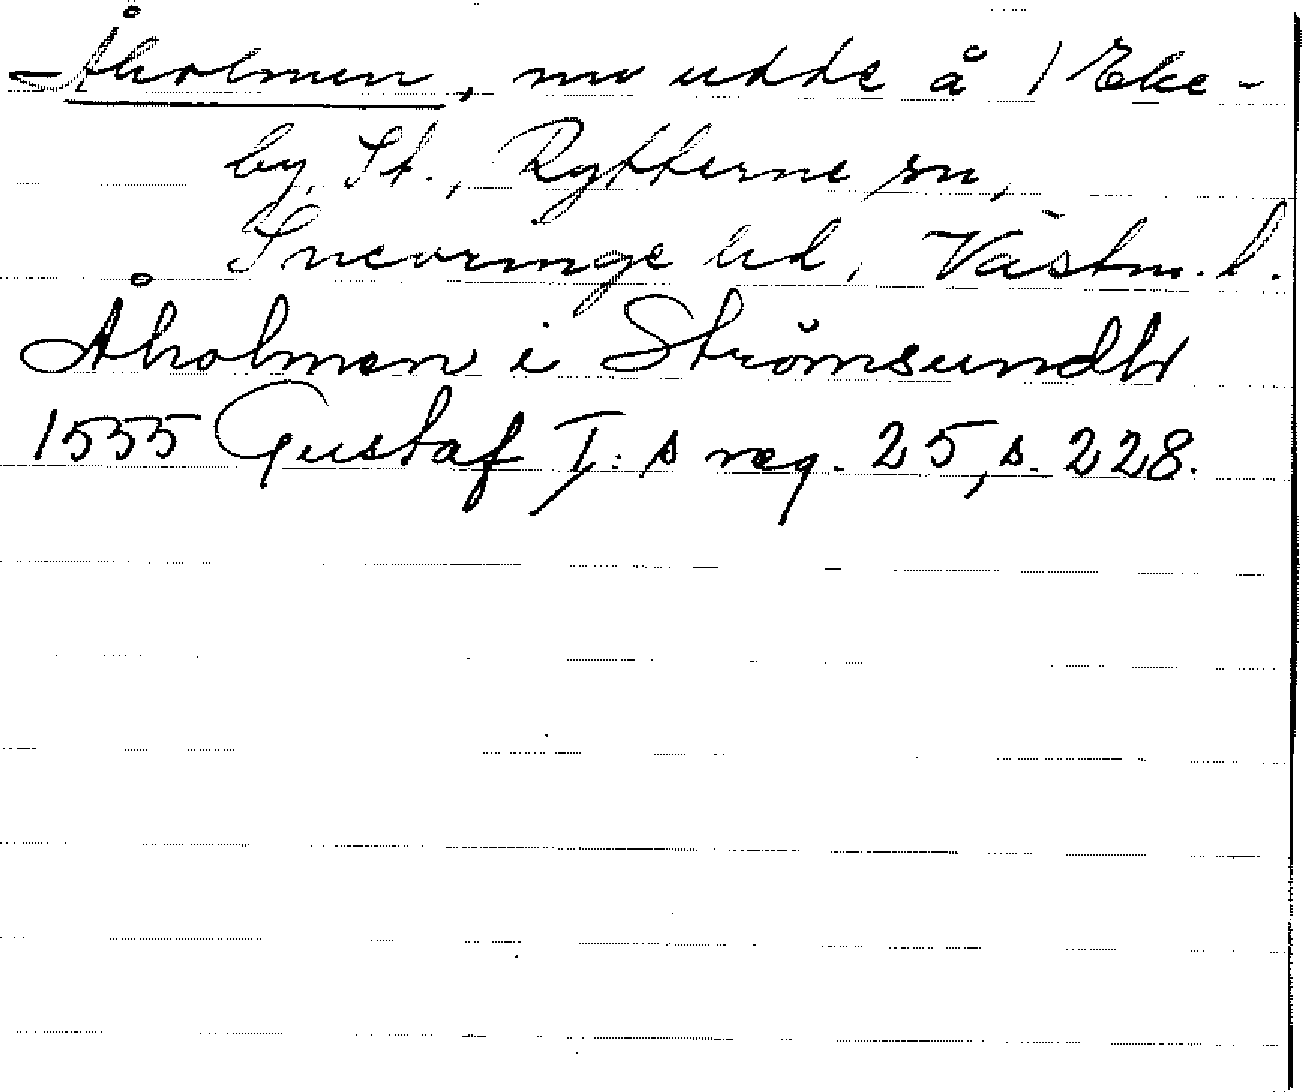 Åholmen, nu udde å / Eke-
by, St., Rytterne sn,
Snevringe hd, Västm. l.
Åholmen i Strömsundh
1555 Gustaf I:s reg. 25, s. 228.